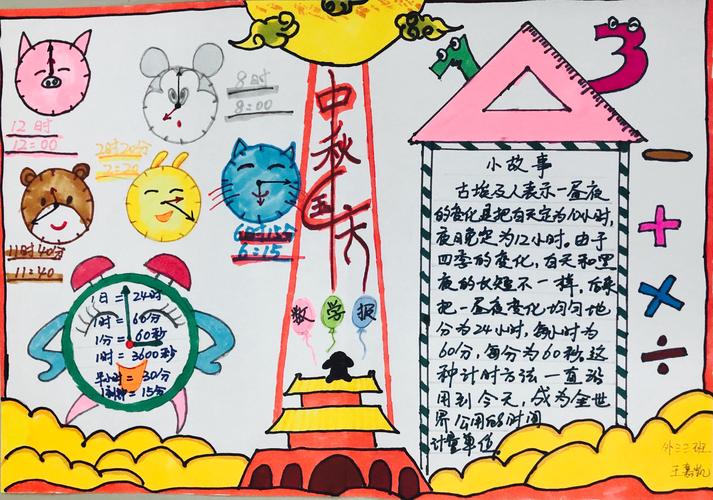 12时
12:00
8时
8:00
2时20分
2:20
11时40分
11:40
6时15分
6:15
1日=24时
1时=60分
1分=60秒
1时=3600秒
半小时=30分
1刻钟=15分
中秋
国庆
数学报
7
3
小故事
古埃及人表示一昼夜
的变化是把白天定为10小时,
夜晚定为12小时。由于
四季的变化,白天和黑
夜的长短不一样。后来
把一昼夜变化均匀地
分为24小时,每小时为
60分,每分为60秒。这
种计时方法一直沿
用到今天,成为全世
界公用的时间
计量单位
− + × ÷
外三三班
王嘉凯